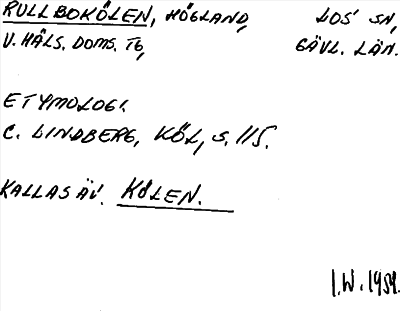 RULLBOKÖLEN, HÖGLAND, LOS' SN,
V. HÄLS. DOMS. TG, GÄVL. LÄN.
ETYMOLOGI.
C. LINDBERG, KÖL, S. 115.
KALLAS ÄV. KÖLEN.
I.W. 1959.